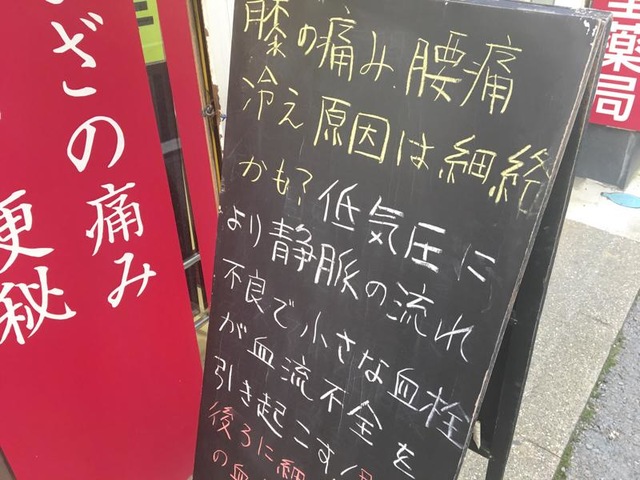 ひざの痛み
便秘
膝の痛み.腰痛
冷え原因は細絡
かも?低気圧に
より静脈の流れ
不良で小さな血栓
が血流不全を
引き起こす!
後ろに細
の血
薬局